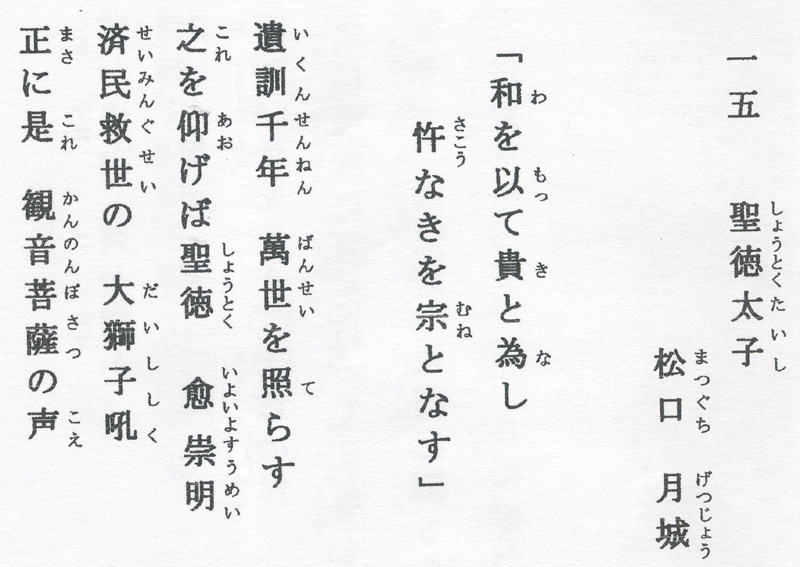 一五　聖徳太子
しょうとくたいし
松口　月城
まつぐち　げつじょう
「和を以て貴と為し
わ　もっ　き　な
忤なきを宗となす」
さこう　むね
遺訓千年　萬世を照らす
いくんせんねん　ばんせい　て
之を仰げば聖徳　愈崇明
これ　あお　しょうとく　いよいよすうめい
済民救世の　大獅子吼
せいみんぐせい　だいししく
正に是　観音菩薩の声
まさ　これ　かんのんぼさつ　こえ